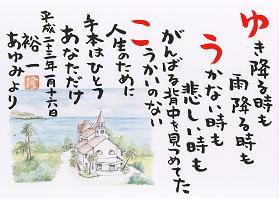 ゆき降る時も
雨降る時も
うかない時も
悲しい時も
がんばる背中を見つめてた
こうかいのない
人生のために
手本はひとつ
あなただけ
平成二十三年一月十六日
裕一
あゆみより